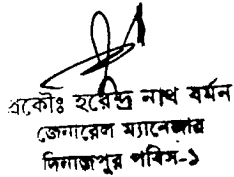 প্রকৌঃ হরেন্দ্র নাথ বর্মন
জেনারেল ম্যানেজার
দিনাজপুর পবিস-১